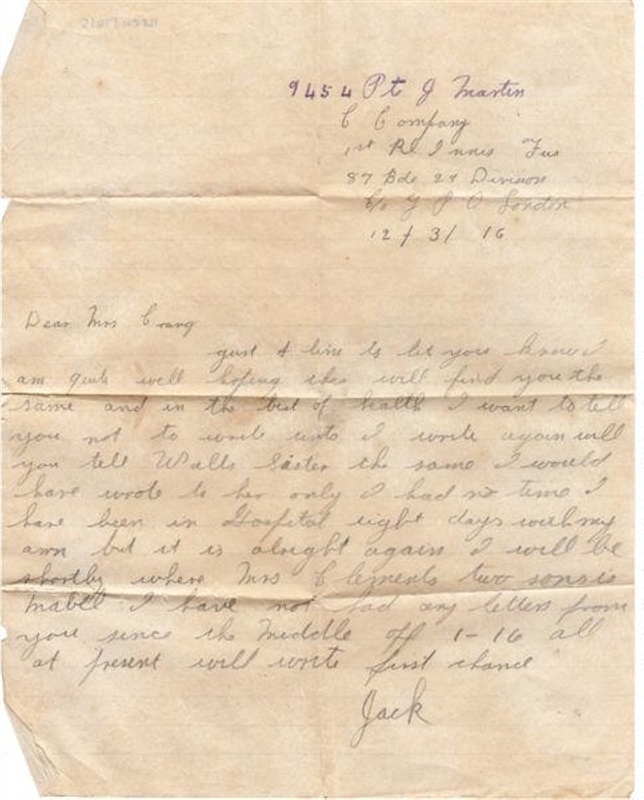 9454 Pt J Martin
C Company
1st Rl Innis Fus
87 Bde 29 Division
c/o G P O London
12/3/16
Dear Mrs Crang
just A line to let you know I
am quite well hoping this will find you the
same and in the best of health I want to tell
you not to write unto I write again will
you tell Walts Sister the same I would
have wrote to her only I had no time I
have been in Hospital eight days with my
arm but it is alright again I will be
shortly where Mrs Clements two sons is
Mabel I have not had any letters from
you since the Middle of 1-16 all
at present will write first chance
Jack